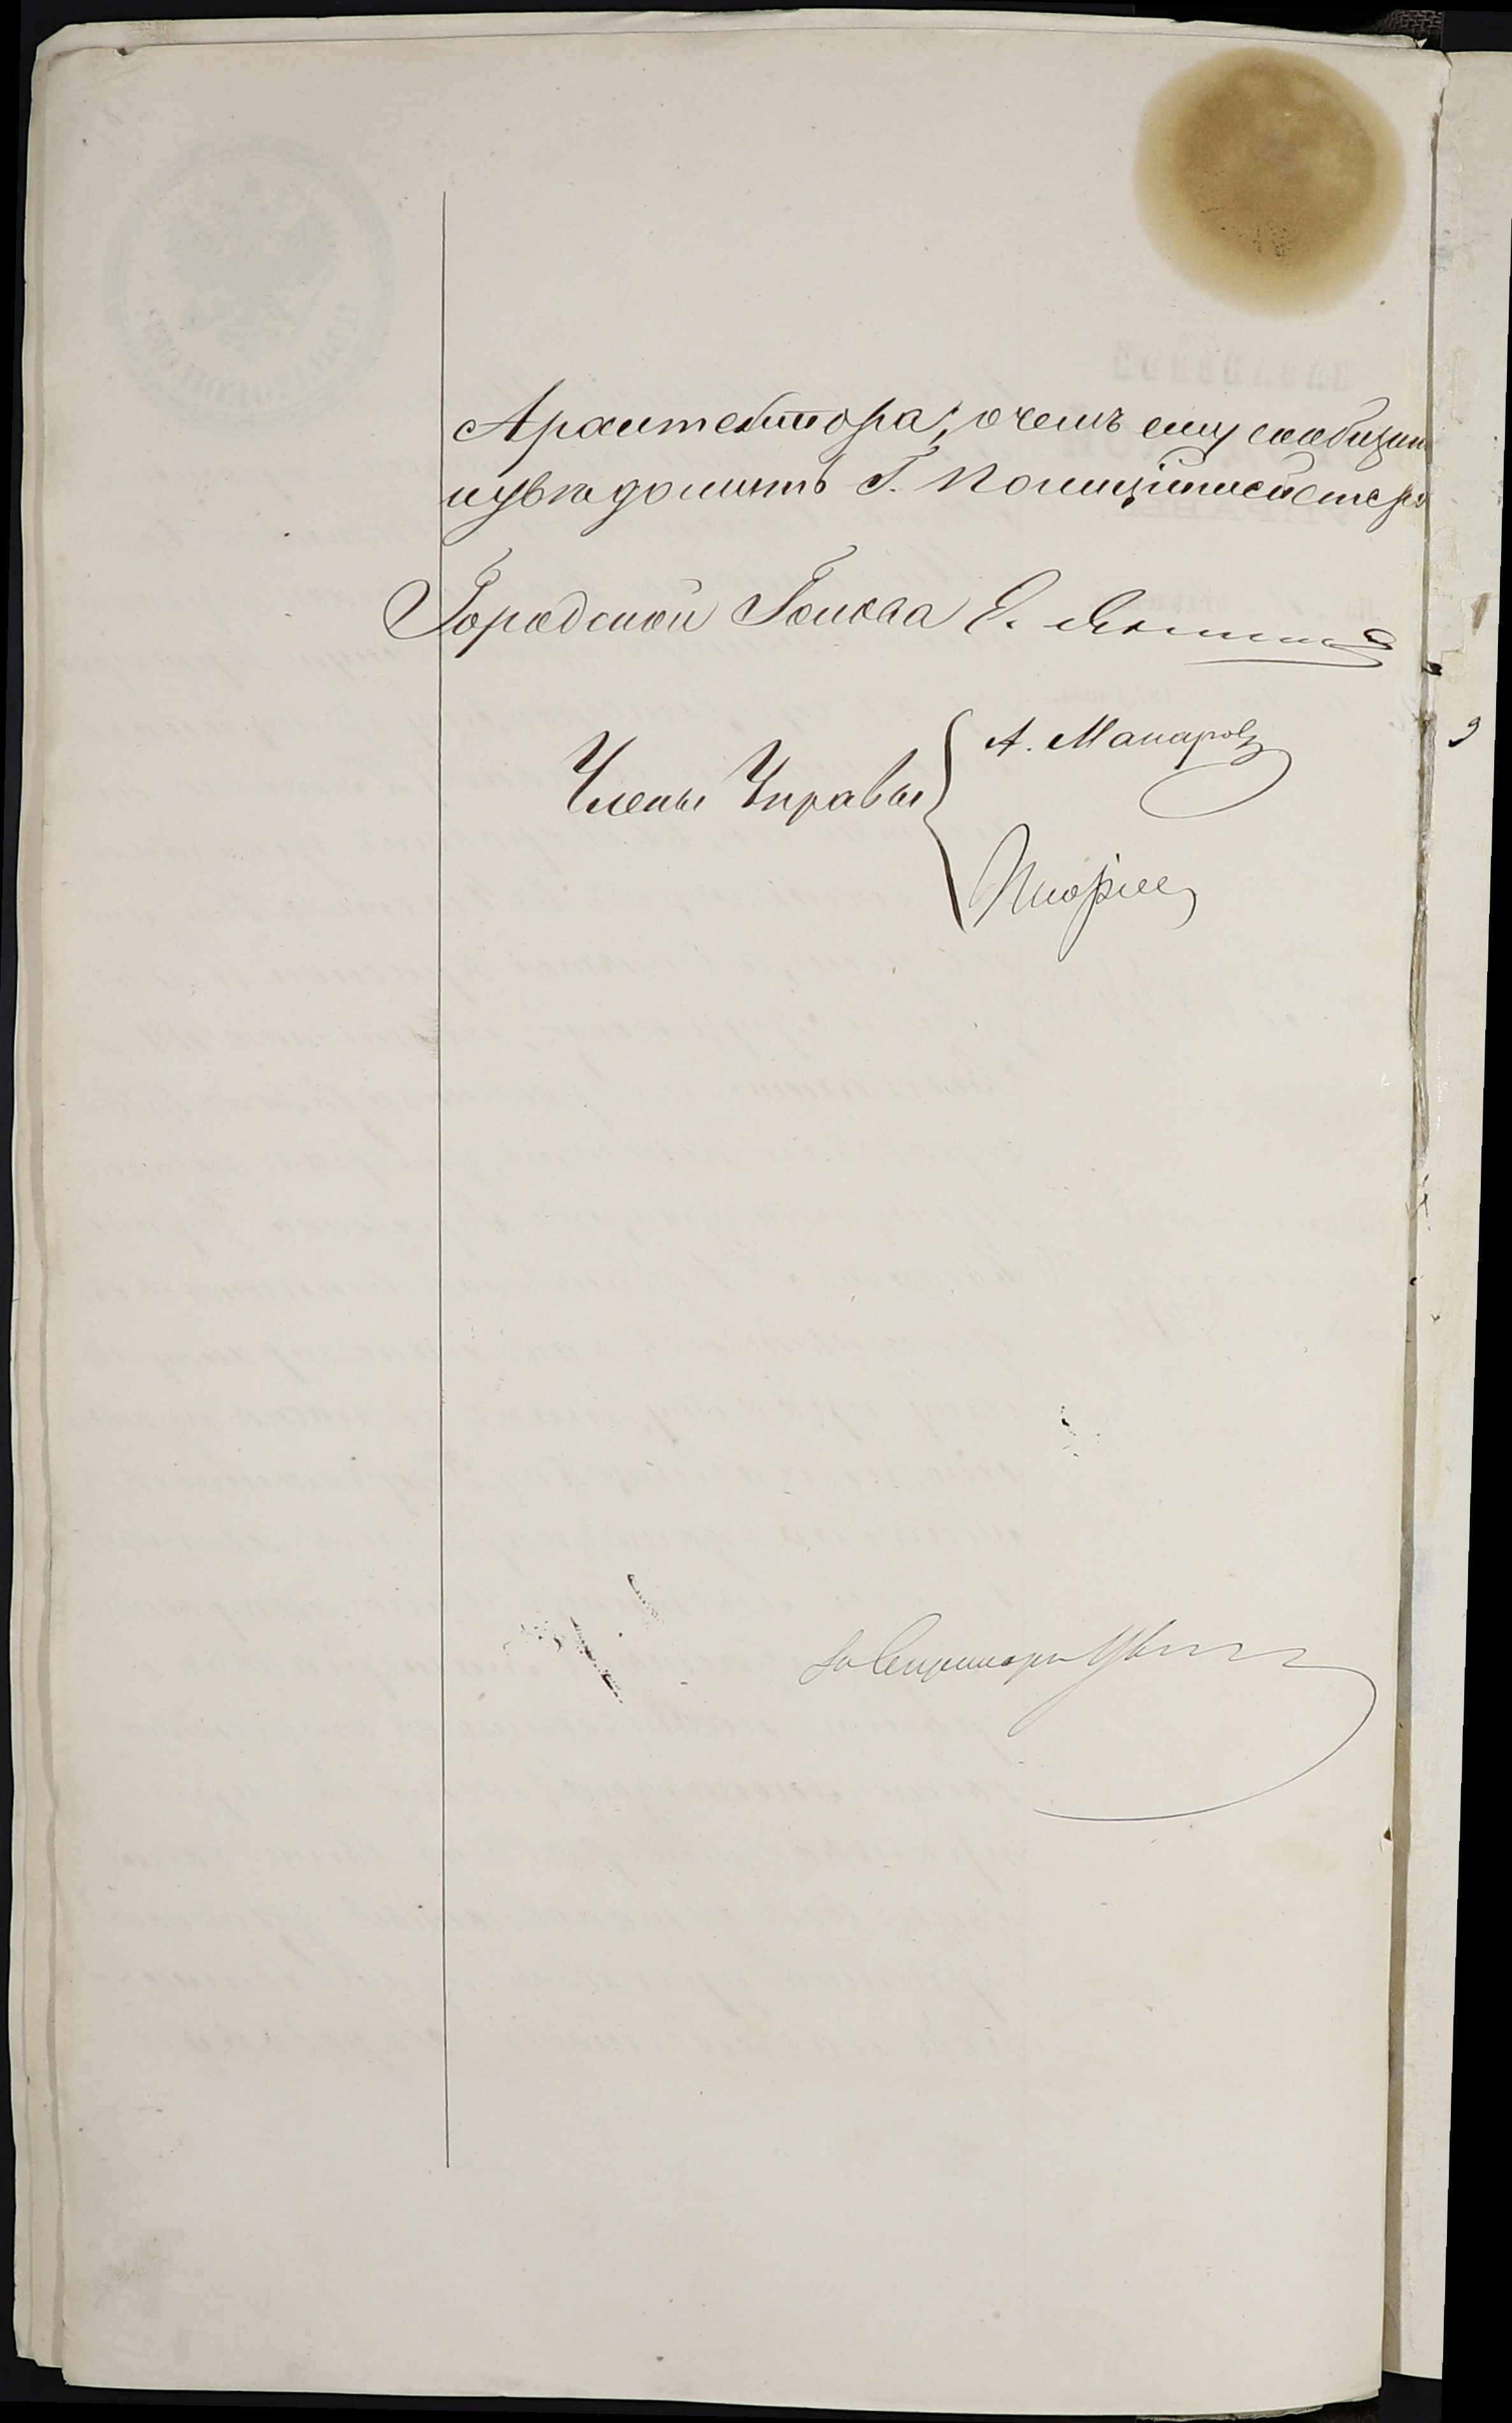 Архитектора, о чемъ ему сообщить
и увѣдомить Г. Полиціймейстера
Городской Голова Е.
Члены Управы
А. Макаровъ
За Секретаря